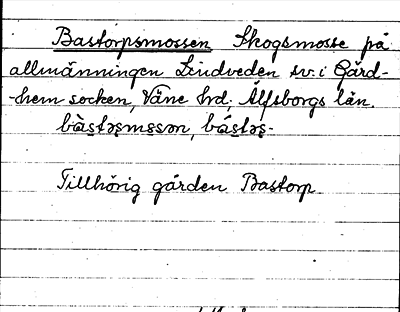 Bastorpsmossen Skogsmosse på
allmänningen Lindveden sv. i Gärd-
hem socken, Väne hrd, Älfsborgs län.
bàstəşmɞsən, bástəş-
Tillhörig gården Bastorp